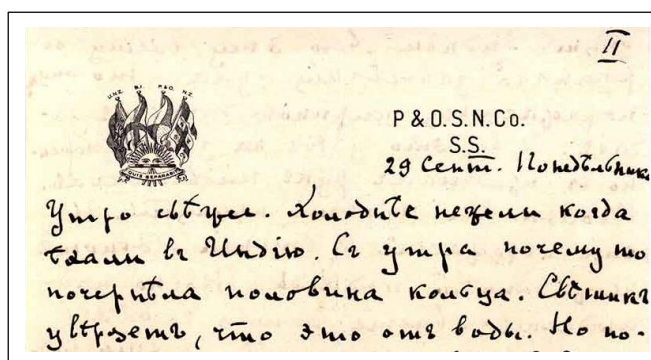 II
U.N.Z. B.I. P.&O. N.Z.
QUIS SEPARABIT
P & O. S. N. Co.
S.S.
29 Сент. Понедѣльникъ
Утро свѣжее. Холоднѣе нежели когда
ѣхали въ Индію. Съ утра почему то
почернѣла половина кольца. Свѣтикъ
увѣряетъ, что это отъ воды. Но по-